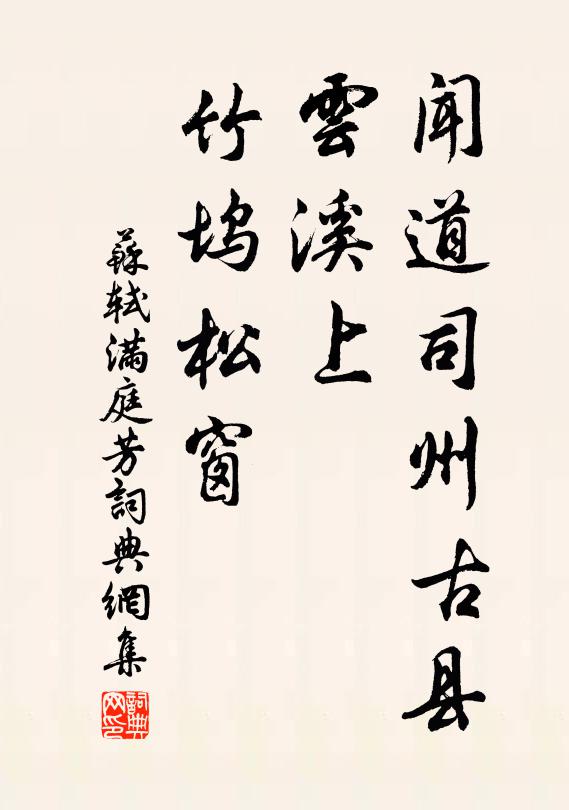 闻道司州古县
雲溪上
竹坞松窗
蘇轼满庭芳詞典網集
詞典网印